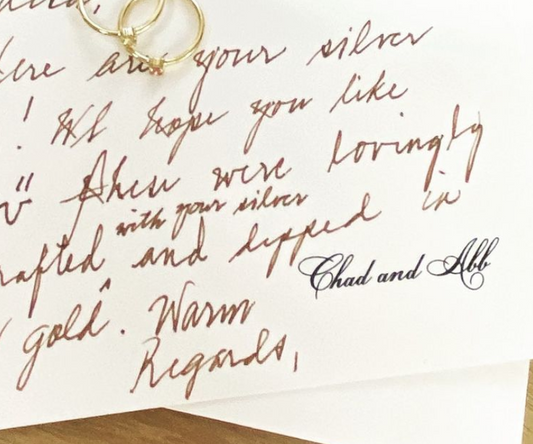 are your silver
! We hope you like
These were lovingly
with your silver
and dipped in
gold. Warm
Regards,
Chad and Abb